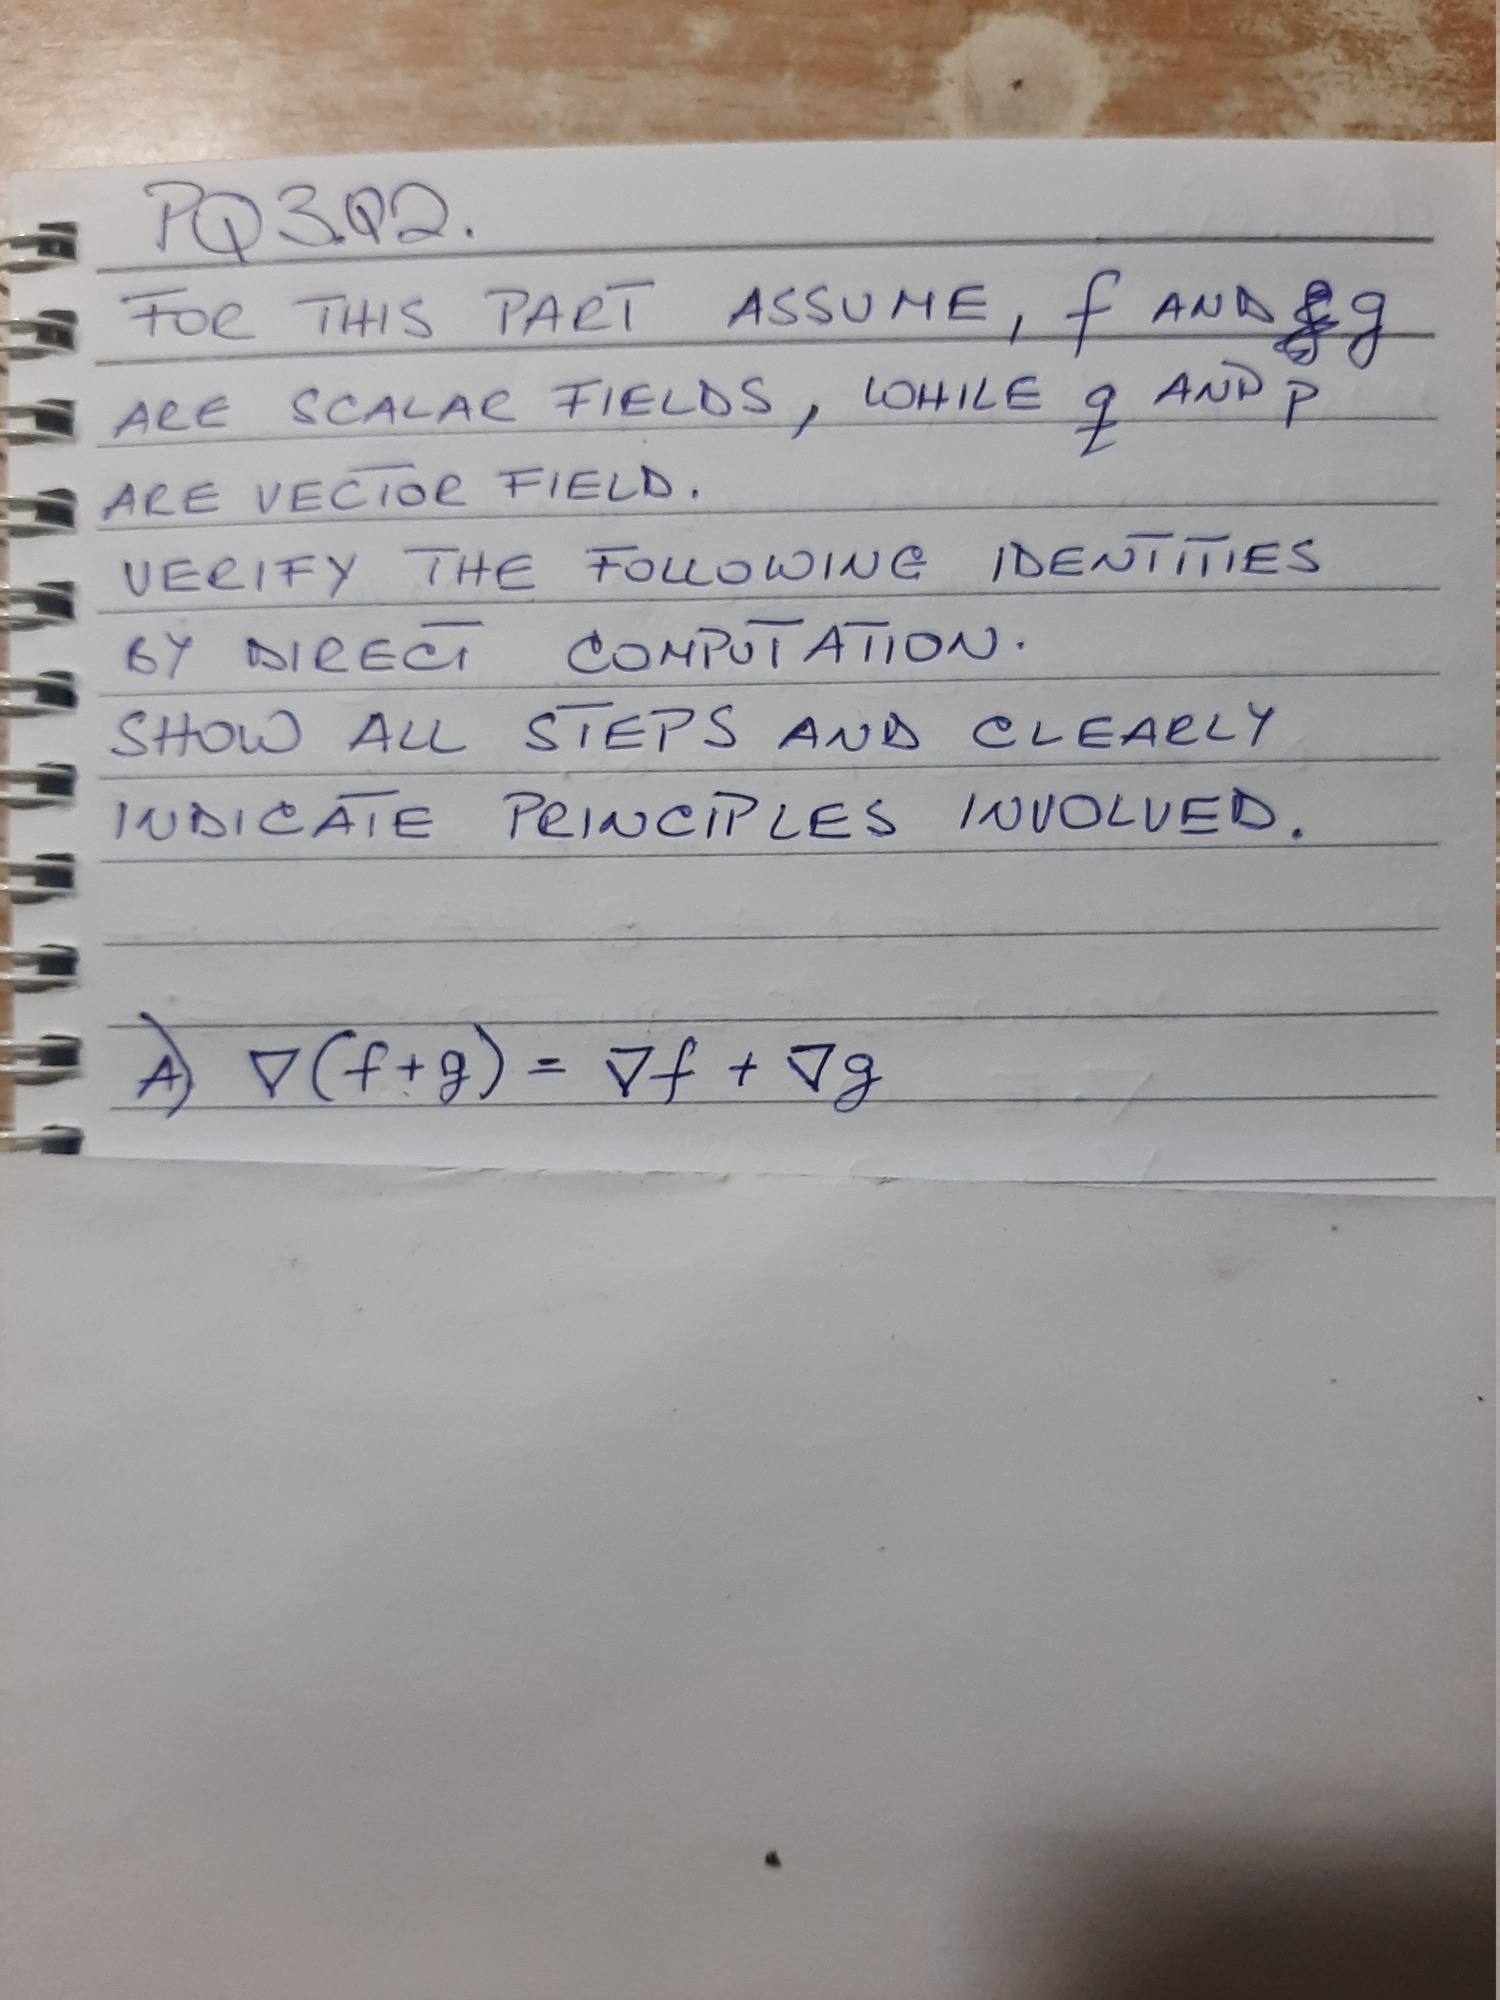 PQ3.Q2.
FOR THIS PART ASSUME, f AND g
ARE SCALAR FIELDS, WHILE q AND p
ARE VECTOR FIELD.
VERIFY THE FOLLOWING IDENTITIES
BY DIRECT COMPUTATION.
SHOW ALL STEPS AND CLEARLY
INDICATE PRINCIPLES INVOLVED.
A) ∇(f+g) = ∇f + ∇g